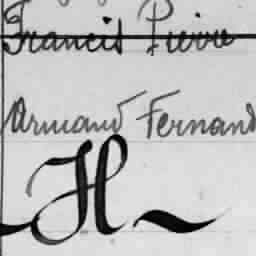 Francis Pierre
Armand Fernand
H